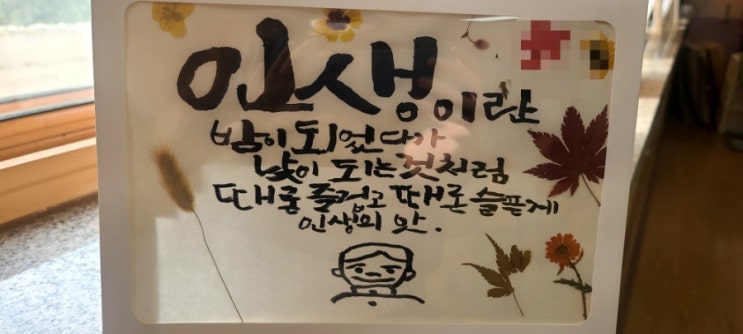 인생이란
밤이 되었다가
낮이 되는것처럼
때론 즐겁고 때론 슬픈게
인생의 맛.